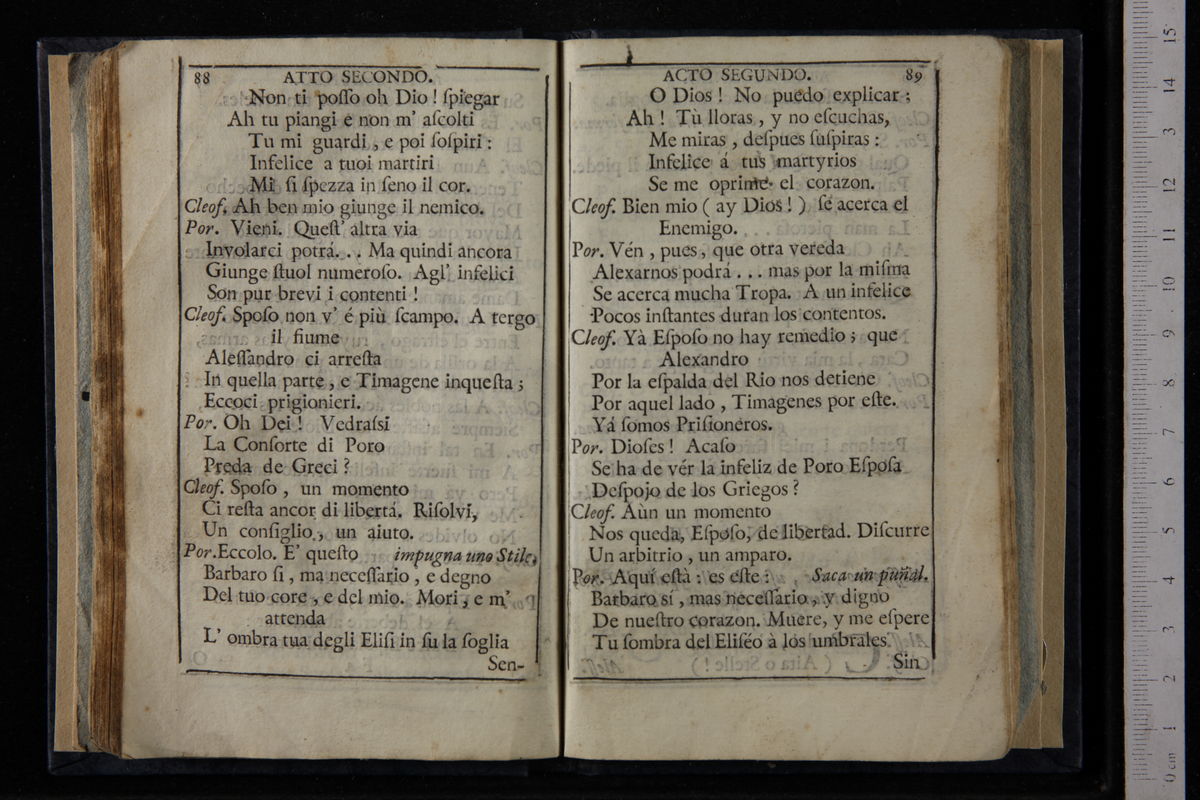 88 ATTO SECONDO.
Non ti poſſo oh Dio! ſpiegar
Ah tu piangi e non m' aſcolti
Tu mi guardi, e poi ſoſpiri:
Infelice a tuoi martiri
Mi ſi ſpezza in ſeno il cor.
Cleof. Ah ben mio giunge il nemico.
Por. Vieni. Queſt' altra via
Involarci potrá... Ma quindi ancora
Giunge ſtuol numeroſo. Agl' infelici
Son pur brevi i contenti!
Cleof. Spoſo non v' é più ſcampo. A tergo
il fiume
Aleſſandro ci arreſta
In quella parte, e Timagene inqueſta;
Eccoci prigionieri.
Por. Oh Dei! Vedraſsi
La Conſorte di Poro
Preda de Greci?
Cleof. Spoſo, un momento
Ci reſta ancor di libertá. Riſolvi,
Un conſiglio, un aiuto.
Por. Eccolo. E' queſto impugna uno Stile,
Barbaro ſi, ma neceſſario, e degno
Del tuo core, e del mio. Mori, e m'
attenda
L' ombra tua degli Eliſi in ſu la ſoglia
Sen-
ACTO SEGUNDO. 89
O Dios! No puedo explicar;
Ah! Tù lloras, y no eſcuchas,
Me miras, deſpues ſuſpiras:
Infelice á tus martyrios
Se me oprime el corazon.
Cleof. Bien mio (ay Dios!) ſe acerca el
Enemigo.
Por. Vén, pues, que otra vereda
Alexarnos podrá... mas por la miſma
Se acerca mucha Tropa. A un infelice
Pocos inſtantes duran los contentos.
Cleof. Yà Eſpoſo no hay remedio; que
Alexandro
Por la eſpalda del Rio nos detiene
Por aquel lado, Timagenes por eſte.
Yá ſomos Priſioneros.
Por. Dioſes! Acaſo
Se ha de vér la infeliz de Poro Eſpoſa
Deſpojo de los Griegos?
Cleof. Aùn un momento
Nos queda, Eſpoſo, de libertad. Diſcurre
Un arbitrio, un amparo.
Por. Aquí eſtà: es éſte: Saca un puñal.
Barbaro sí, mas neceſſario, y digno
De nueſtro corazon. Muere, y me eſpere
Tu ſombra del Eliſéo à los umbrales.
Sin
0 cm 1 2 3 4 5 6 7 8 9 10 11 12 13 14 15